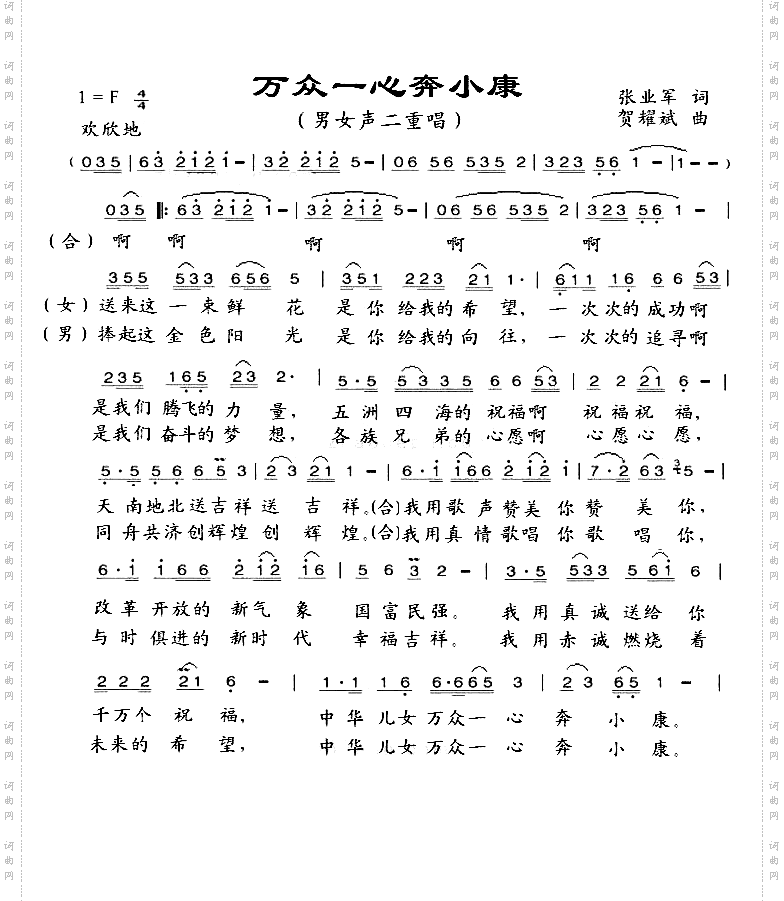 万众一心奔小康
1=F 4/4
(男女声二重唱)
张业军 词
欢欣地
贺耀斌 曲
(035|63 2121-|32 2125-|06 56 535 2|323 56 1-|1--)
035 ‖:63 2121-|32 2125-|06 56 535 2|323 56 1-|
(合)啊 啊 啊 啊 啊
355 533 656 5|351 223 21 1·|611 16 6 653|
(女)送来这 一 束鲜 花 是 你 给我的 希 望, 一 次次的成功啊
(男)捧起这 金 色阳 光 是 你 给我的 向 往, 一 次次的追寻啊
235 165 23 2·|5·5 533 5 6 6 53|2 2 21 6-|
是我们 腾飞的 力 量, 五 洲 四 海的 祝福啊 祝 福祝 福,
是我们 奋斗的 梦 想, 各 族 兄 弟的 心愿啊 心 愿心 愿,
5·5 56 6 65 3|23 21 1-|6·1 166 212|7·2 63 5-|
天 南地北送吉祥送 吉 祥。(合)我用歌 声赞美 你赞 美 你,
同 舟共济创辉煌创 辉 煌。(合)我用真 情歌唱 你歌 唱 你,
6·1 166 2 12 16|5 6 3 2-|3·5 533 5 61 6|
改 革 开放的 新气 象 国富民强。 我 用 真 诚 送给 你
与 时 俱进的 新时 代 幸福吉祥。 我 用 赤 诚 燃烧 着
2 2 2 21 6-|1·1 16 6·665 3|23 65 1-|
千万个 祝 福, 中 华 儿女 万众一 心 奔 小 康。
未来的 希 望, 中 华 儿女 万众一 心 奔 小 康。
词曲网